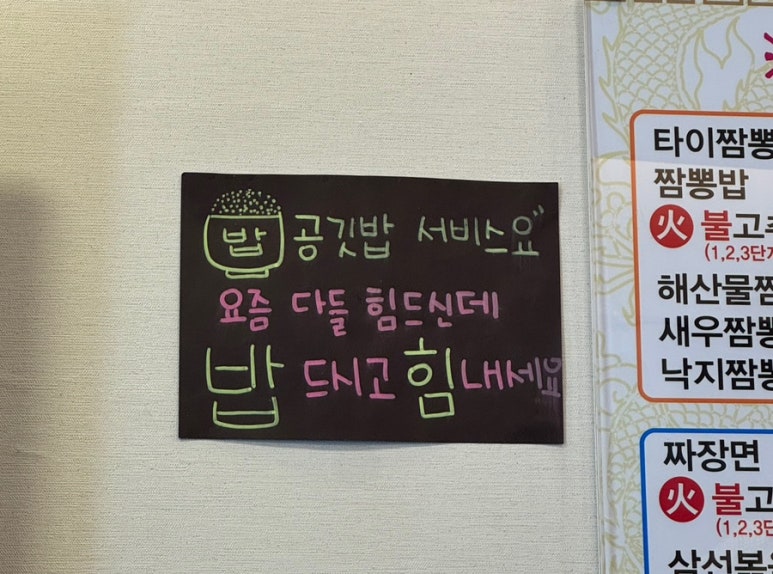 밥 공깃밥 서비스요"
요즘 다들 힘드신데
밥 드시고 힘내세요
타이짬뽕
짬뽕밥
火 불고추
(1,2,3단계
해산물짬
새우짬뽕
낙지짬뽕
짜장면
火 불고
(1,2,3단
삼선볶